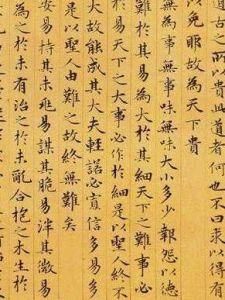 道古之所以貴此道者何也不曰求以得有
以免耶故為天下貴
無為事無事味無味大小多少報怨以德
難於其易為大於其細天下之難事必
於易天下之大事必作於細是以聖人終不
大故能成其大夫輕諾必寡信多易多
是以聖人由難之故終無難矣
安易持其未兆易謀其脆易泮其微易
為之於未有治之於未亂合抱之木生於